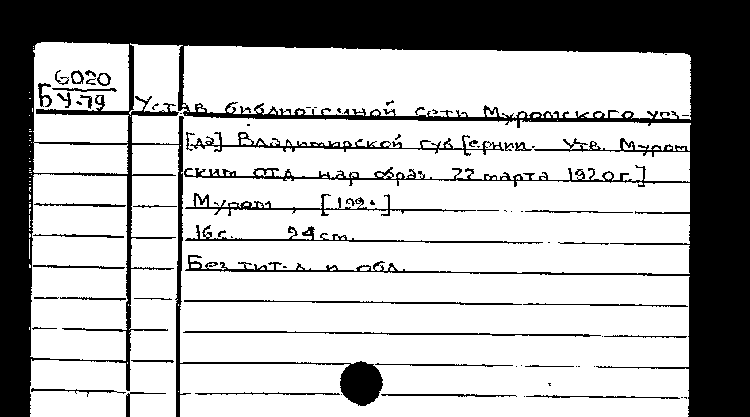 6020
Б У-79
Устав библиотечной сети Муромского уез-
[да] Владимирской губ[ернии. Утв. Муром
ским отд. нар образ. 22 марта 1920 г.]
Муром, [192•].
16 с. 24 см.
Без тит. л. и обл.